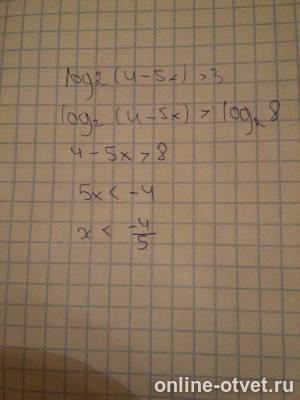 log2 (4-5x) >3
log₂ (4-5x) > log₂ 8
4-5x>8
5x< -4
x < -4/5
online-otvet.ru